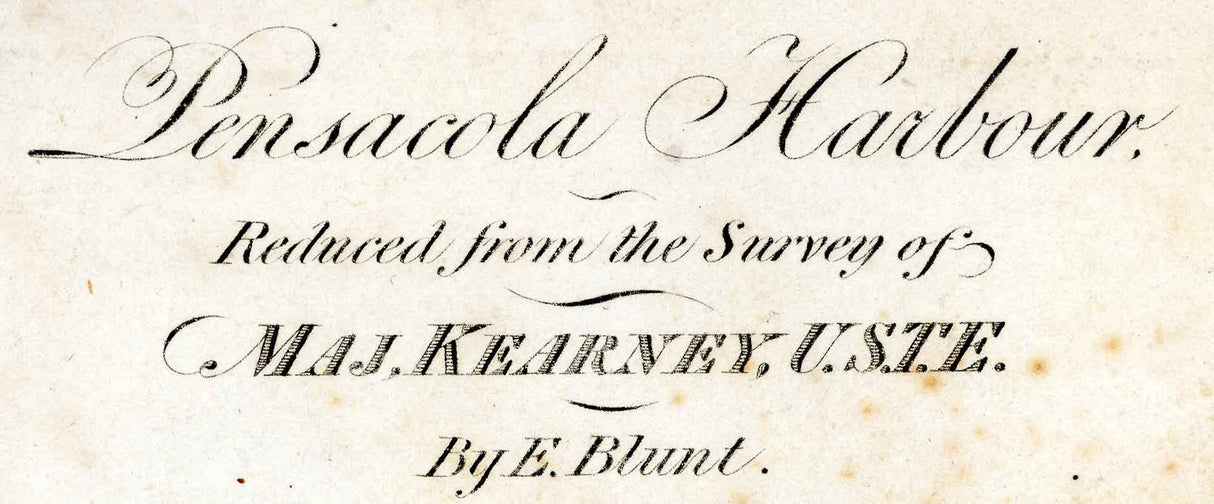 Pensacola Harbour.
Reduced from the Survey of
MAJ. KEARNEY, U.S.T.E.
By E. Blunt.